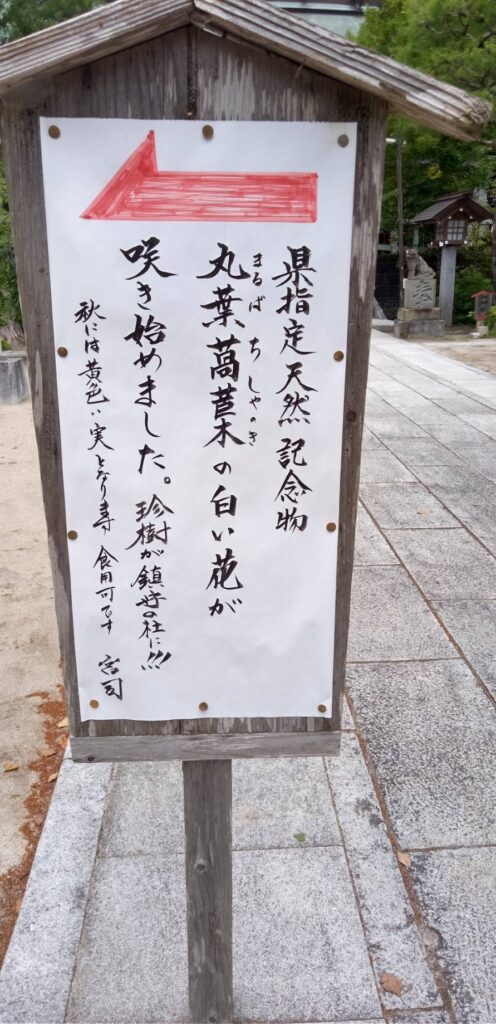 県指定天然記念物
まるばちしゃのき
丸葉萵苣木の白い花が
咲き始めました。珍樹が鎮守の社に!!!
秋には黄色い実となり寿 食用可です 宮司